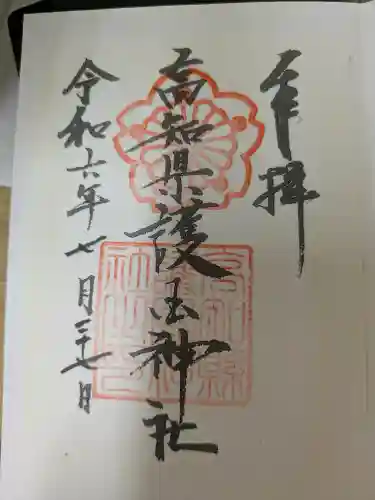 奉拝
高知県護国神社
令和六年七月二十七日